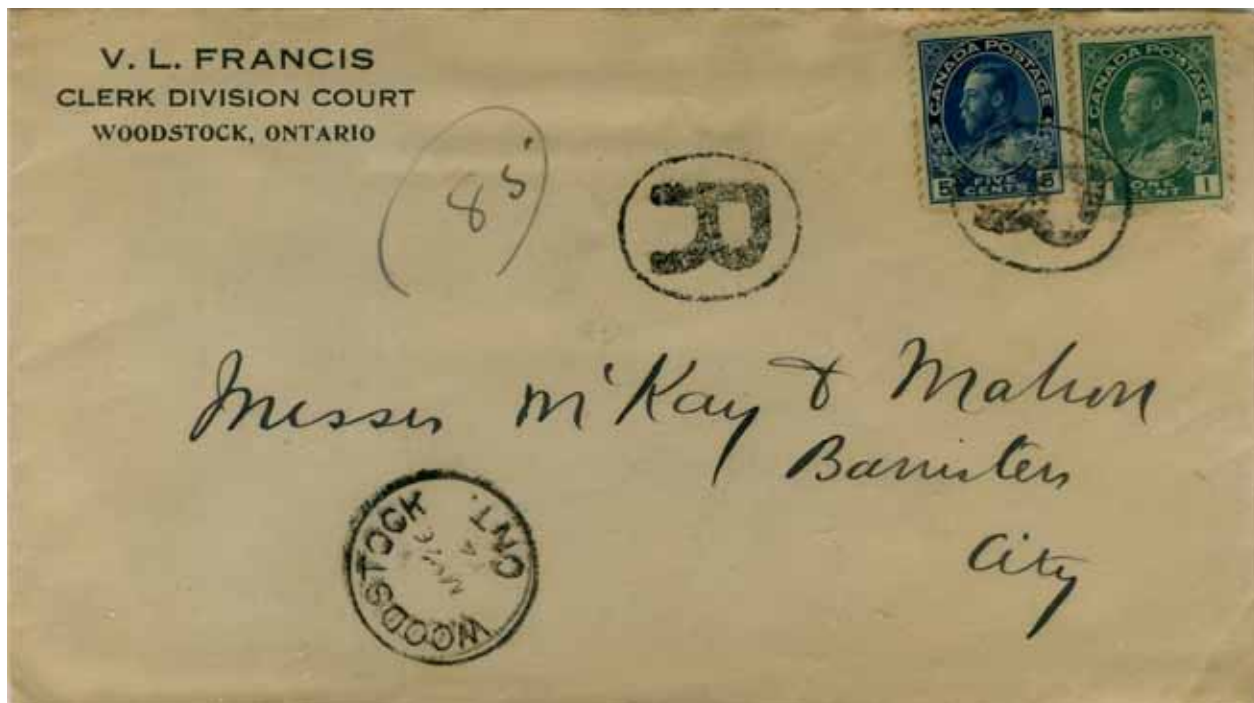 V. L. FRANCIS
CLERK DIVISION COURT
WOODSTOCK, ONTARIO
(85)
CANADA POSTAGE
5 FIVE CENTS 5
CANADA POSTAGE
1 ONE CENT 1
R
R
Messrs McKay & Mahon
Barristers
City
WOODSTOCK
ONT.